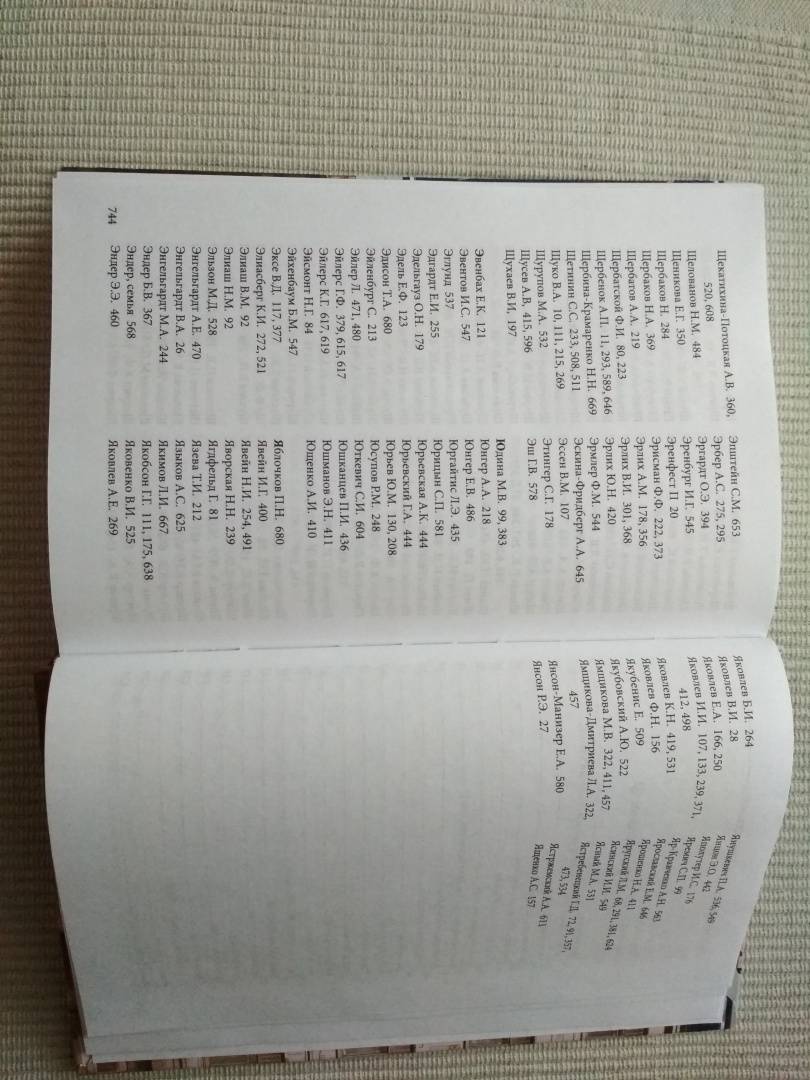 Щекатихина-Потоцкая А.В. 360,
520, 608
Щелованов Н.М. 484
Щеникова Е.Г. 350
Щербаков Н. 284
Щербаков Н.А. 369
Щербатов А.А. 219
Щербатской Ф.И. 80, 223
Щербенок А.П. 11, 293, 589, 646
Щербина-Крамаренко Н.Н. 669
Щетинин С.С. 233, 508, 511
Щуко В.А. 10, 111, 215, 269
Щурупов М.А. 532
Щусев А.В. 415, 596
Щухаев В.И. 197
Эвенбах Е.К. 121
Эвентов И.С. 547
Эглунд 537
Эдгардт Е.И. 255
Эдельгауз О.Н. 179
Эдель Е.Ф. 123
Эдисон Т.А. 680
Эйленбург С. 213
Эйлер Л. 471, 480
Эйлерс Г.Ф. 379, 615, 617
Эйлерс К.Г. 617, 619
Эйсмонт Н.Г. 84
Эйхенбаум Б.М. 547
Эксе В.Д. 117, 377
Элиасберг К.И. 272, 521
Элиаш В.М. 92
Элиаш Н.М. 92
Эльзон М.Д. 528
Энгельгардт А.Е. 470
Энгельгардт В.А. 26
Энгельгардт М.А. 244
Эндер Б.В. 367
Эндер, семья 568
Эндер Э.Э. 460
744
Эпштейн С.М. 653
Эрбер А.С. 275, 295
Эргардт О.Э. 394
Эренбург И.Г. 545
Эренфест П 20
Эрисман Ф.Ф. 222, 373
Эрлих А.М. 178, 356
Эрлих В.И. 301, 368
Эрлих Ю.Н. 420
Эрмлер Ф.М. 544
Эскина-Фридберг А.А. 645
Эссен В.М. 107
Этингер С.Г. 178
Эш Г.В. 578
Юдина М.В. 99, 383
Юнгер А.А. 218
Юнгер Е.В. 486
Юргайтис Л.Э. 435
Юрицын С.П. 581
Юрьевская А.К. 444
Юрьевский Г.А. 444
Юрьев Ю.М. 130, 208
Юсупов Р.М. 248
Юткевич С.И. 604
Юшканцев П.И. 436
Юшманов Э.Н. 411
Ющенко А.И. 410
Яблочков П.Н. 680
Явейн И.Г. 400
Явейн Н.И. 254, 491
Яворская Н.Н. 239
Ягдфельд Г. 81
Язева Т.И. 212
Языков А.С. 625
Якимов Л.И. 667
Якобсон Г.Г. 111, 175, 638
Яковенко В.И. 525
Яковлев А.Е. 269
Яковлев Б.И. 264
Яковлев В.И. 28
Яковлев Е.А. 166, 250
Яковлев И.И. 107, 133, 239, 371,
412, 498
Яковлев К.Н. 419, 531
Яковлев Ф.Н. 156
Якубенис Е. 509
Якубовский А.Ю. 522
Ямщикова М.В. 322, 411, 457
Ямщикова-Дмитриева Л.А. 322,
457
Янсон-Манизер Е.А. 580
Янсон Р.Э. 27
Янушкевич П.А. 536, 549
Янцон Э.О. 442
Яполутер И.С. 176
Яремич С.П. 99
Яр-Кравченко А.Н. 563
Ярославский Е.М. 646
Ярошенко Н.А. 411
Яругский Л.М. 68, 291, 381, 624
Ясинский И.И. 549
Ясный М.А. 531
Ястребенецкий Г.Д. 72, 91, 357,
473, 534
Ястржемский А.А. 611
Ященко А.С. 157